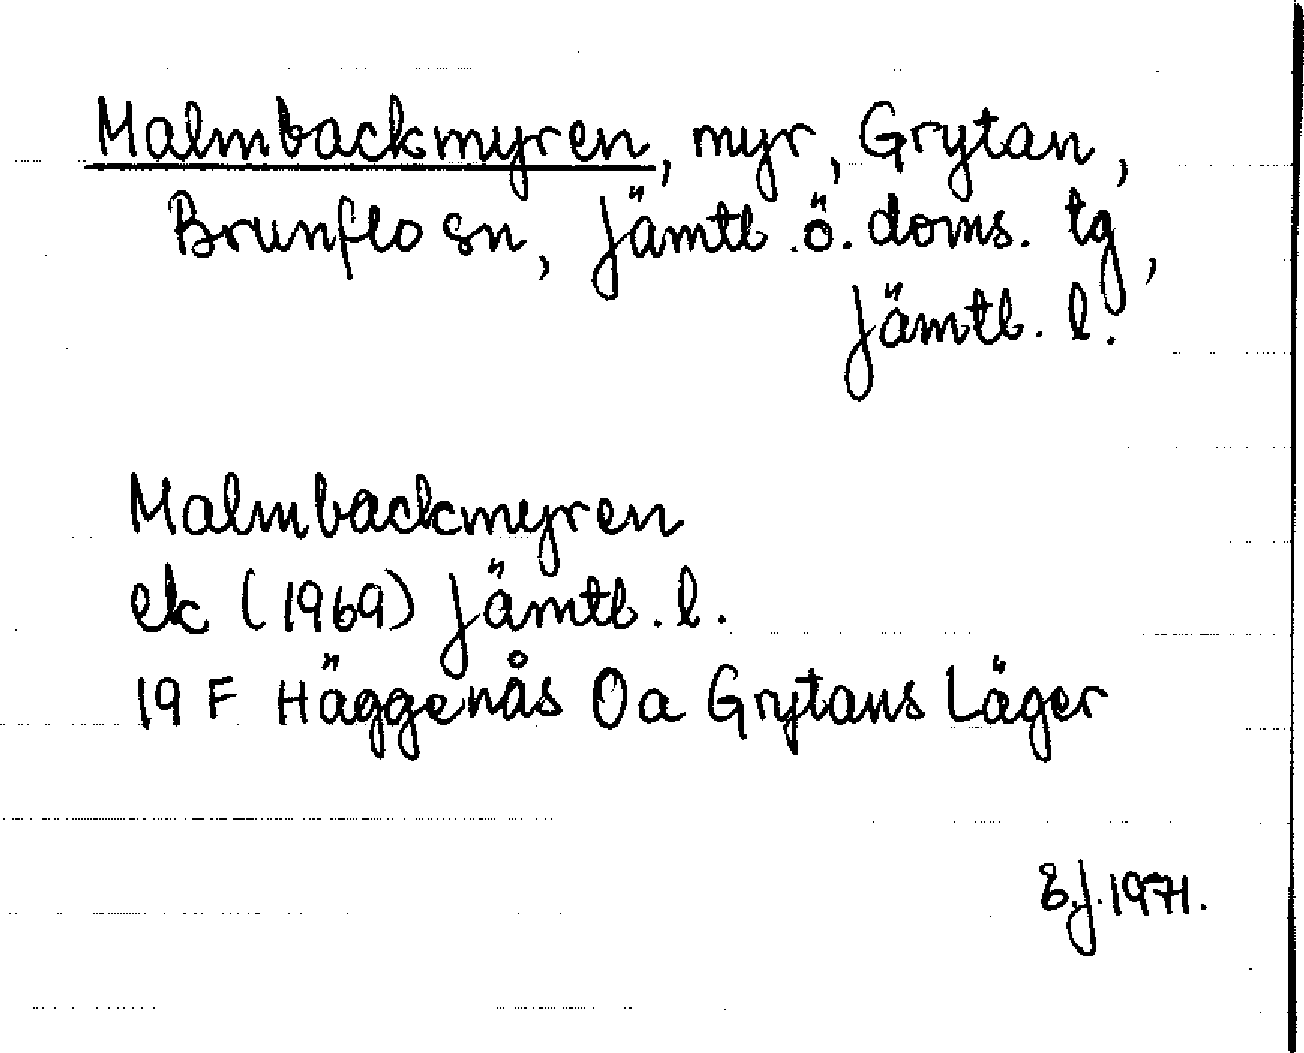 Malmbackmyren, myr, Grytan,
Brunflo sn, Jämtl. ö. doms. tg,
Jämtl. l.
Malmbackmyren
ek (1969) Jämtl. l.
19 F Häggenås 0a Grytans Läger
E.J. 1971.